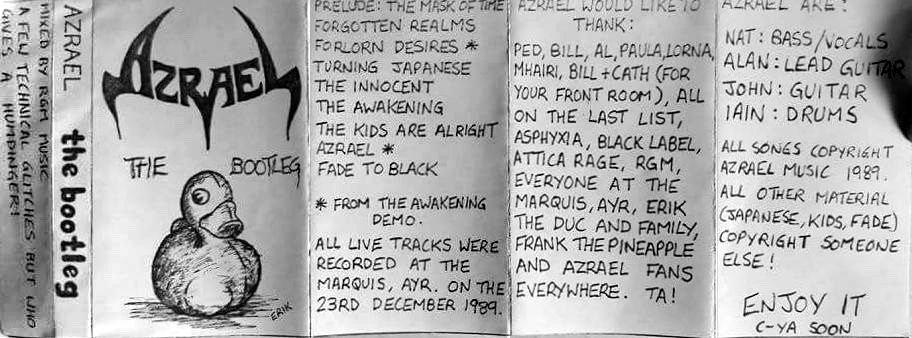 AZRAEL the bootleg
MIXED BY RGM MUSIC
A FEW TECHNICAL GLITCHES BUT WHO
GIVES A HUMDINGER!
AZRAEL
THE BOOTLEG
ERIK
PRELUDE: THE MASK OF TIME
FORGOTTEN REALMS
FORLORN DESIRES *
TURNING JAPANESE
THE INNOCENT
THE AWAKENING
THE KIDS ARE ALRIGHT
AZRAEL *
FADE TO BLACK
* FROM THE AWAKENING
DEMO.
ALL LIVE TRACKS WERE
RECORDED AT THE
MARQUIS, AYR. ON THE
23RD DECEMBER 1989.
AZRAEL WOULD LIKE TO
THANK:
PED, BILL, AL, PAULA, LORNA,
MHAIRI, BILL + CATH (FOR
YOUR FRONT ROOM), ALL
ON THE LAST LIST,
ASPHYXIA, BLACK LABEL,
ATTICA RAGE, RGM,
EVERYONE AT THE
MARQUIS, AYR, ERIK
THE DUC AND FAMILY,
FRANK THE PINEAPPLE
AND AZRAEL FANS
EVERYWHERE. TA!
AZRAEL ARE:
NAT: BASS/VOCALS
ALAN: LEAD GUITAR
JOHN: GUITAR
IAIN: DRUMS
ALL SONGS COPYRIGHT
AZRAEL MUSIC 1989.
ALL OTHER MATERIAL
(JAPANESE, KIDS, FADE)
COPYRIGHT SOMEONE
ELSE!
ENJOY IT
C-YA SOON